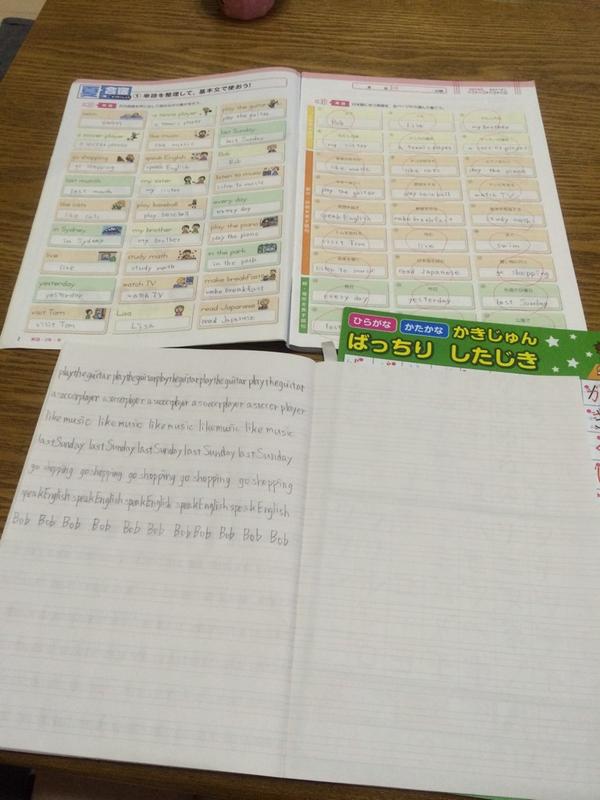 ① 単語を整理して、基本文で使おう!
swim
swim
a tennis player
a tennis player
play the guitar
play the guitar
a soccer player
a soccer player
like music
like music
last Sunday
last Sunday
go shopping
go shopping
speak English
speak English
Bob
Bob
last month
last month
my sister
my sister
listen to music
listen to music
like cats
like cats
play baseball
play baseball
every day
every day
in Sydney
in Sydney
my brother
my brother
play the piano
play the piano
live
live
study math
study math
in the park
in the park
yesterday
yesterday
watch TV
watch TV
make breakfast
make breakfast
visit Tom
visit Tom
Lisa
Lisa
read Japanese
read Japanese
Bob
Lisa
my brother
my sister
a tennis player
a soccer player
like music
like cats
play the piano
play the guitar
play baseball
watch TV
speak English
make breakfast
study math
visit Tom
live
swim
listen to music
read Japanese
go shopping
every day
yesterday
last Sunday
ひらがな カタカナ かきじゅん
ばっちり したじき
play the guitar play the guitar play the guitar play the guitar play the guitar
a soccer player a soccer player a soccer player a soccer player a soccer player
like music like music like music like music like music
last Sunday last Sunday last Sunday last Sunday last Sunday
go shopping go shopping go shopping go shopping go shopping
speak English speak English speak English speak English speak English
Bob Bob Bob Bob Bob Bob Bob Bob Bob Bob Bob